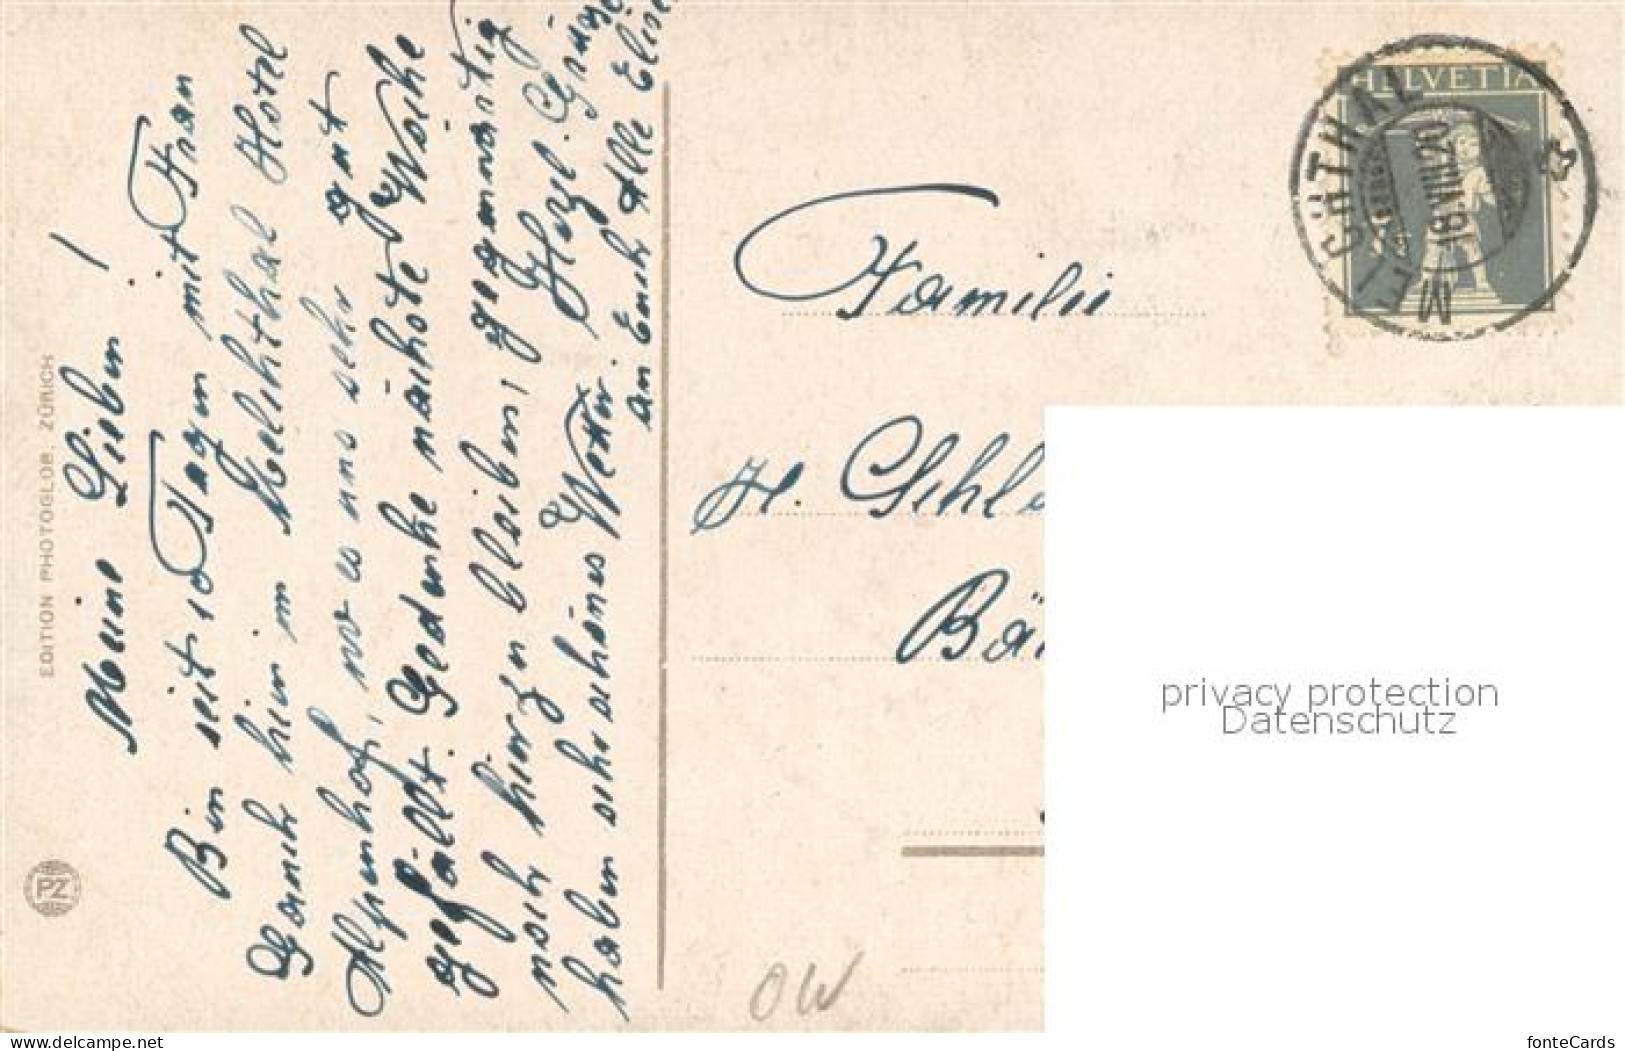 Meine Lieben!
Bin seit 10 Tagen mit Frau
hier im Melchthal Hotel
Alpenhof, wo es uns sehr gut
gefällt. Gedenke nächste Woche
noch hierzu bleiben, gegenwärtig
haben sehr schönes Wetter. Herzl. Grüsse
an Euch Alle Elise
EDITION PHOTOGLOB. ZÜRICH
PZ
HELVETIA
MELCHTHAL
18.VIII.20
Familie
H. Schl
Bä
OW
privacy protection
Datenschutz
www.delcampe.net
fonteCards